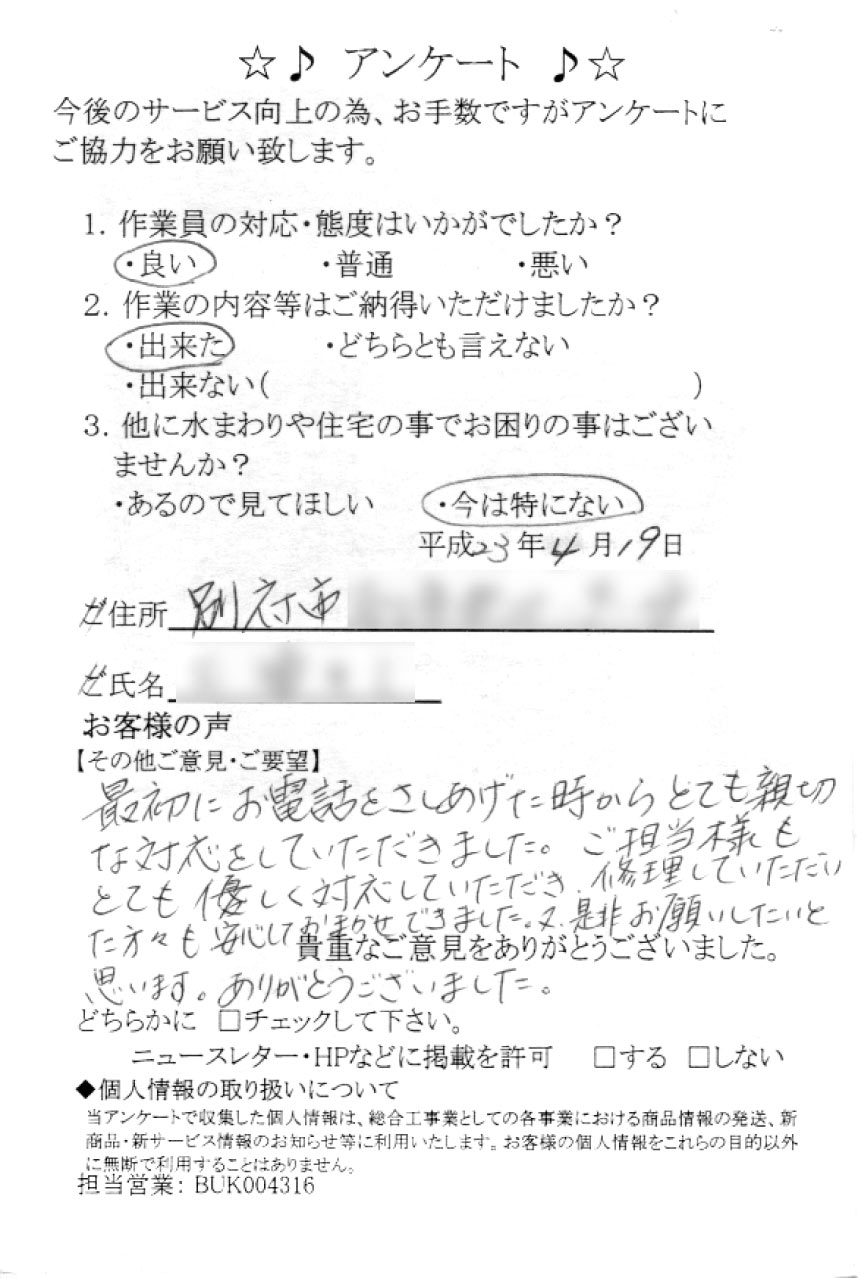 ☆♪ アンケート ♪☆
今後のサービス向上の為、お手数ですがアンケートに
ご協力をお願い致します。
1. 作業員の対応・態度はいかがでしたか？
・良い ・普通 ・悪い
2. 作業の内容等はご納得いただけましたか？
・出来た ・どちらとも言えない
・出来ない( )
3. 他に水まわりや住宅の事でお困りの事はござい
ませんか？
・あるので見てほしい ・今は特にない
平成23年4月19日
ご住所 別府市
ご氏名
お客様の声
【その他ご意見・ご要望】
最初にお電話をさしあげた時からとても親切
な対応をしていただきました。ご担当様も
とても優しく対応していただき、修理していただい
た方々も安心しておまかせできました。又、是非お願いしたいと
貴重なご意見をありがとうございました。
思います。ありがとうございました。
どちらかに □チェックして下さい。
ニュースレター・HPなどに掲載を許可 □する □しない
◆個人情報の取り扱いについて
当アンケートで収集した個人情報は、総合工事業としての各事業における商品情報の発送、新
商品・新サービス情報のお知らせ等に利用いたします。お客様の個人情報をこれらの目的以外
に無断で利用することはありません。
担当営業: BUK004316